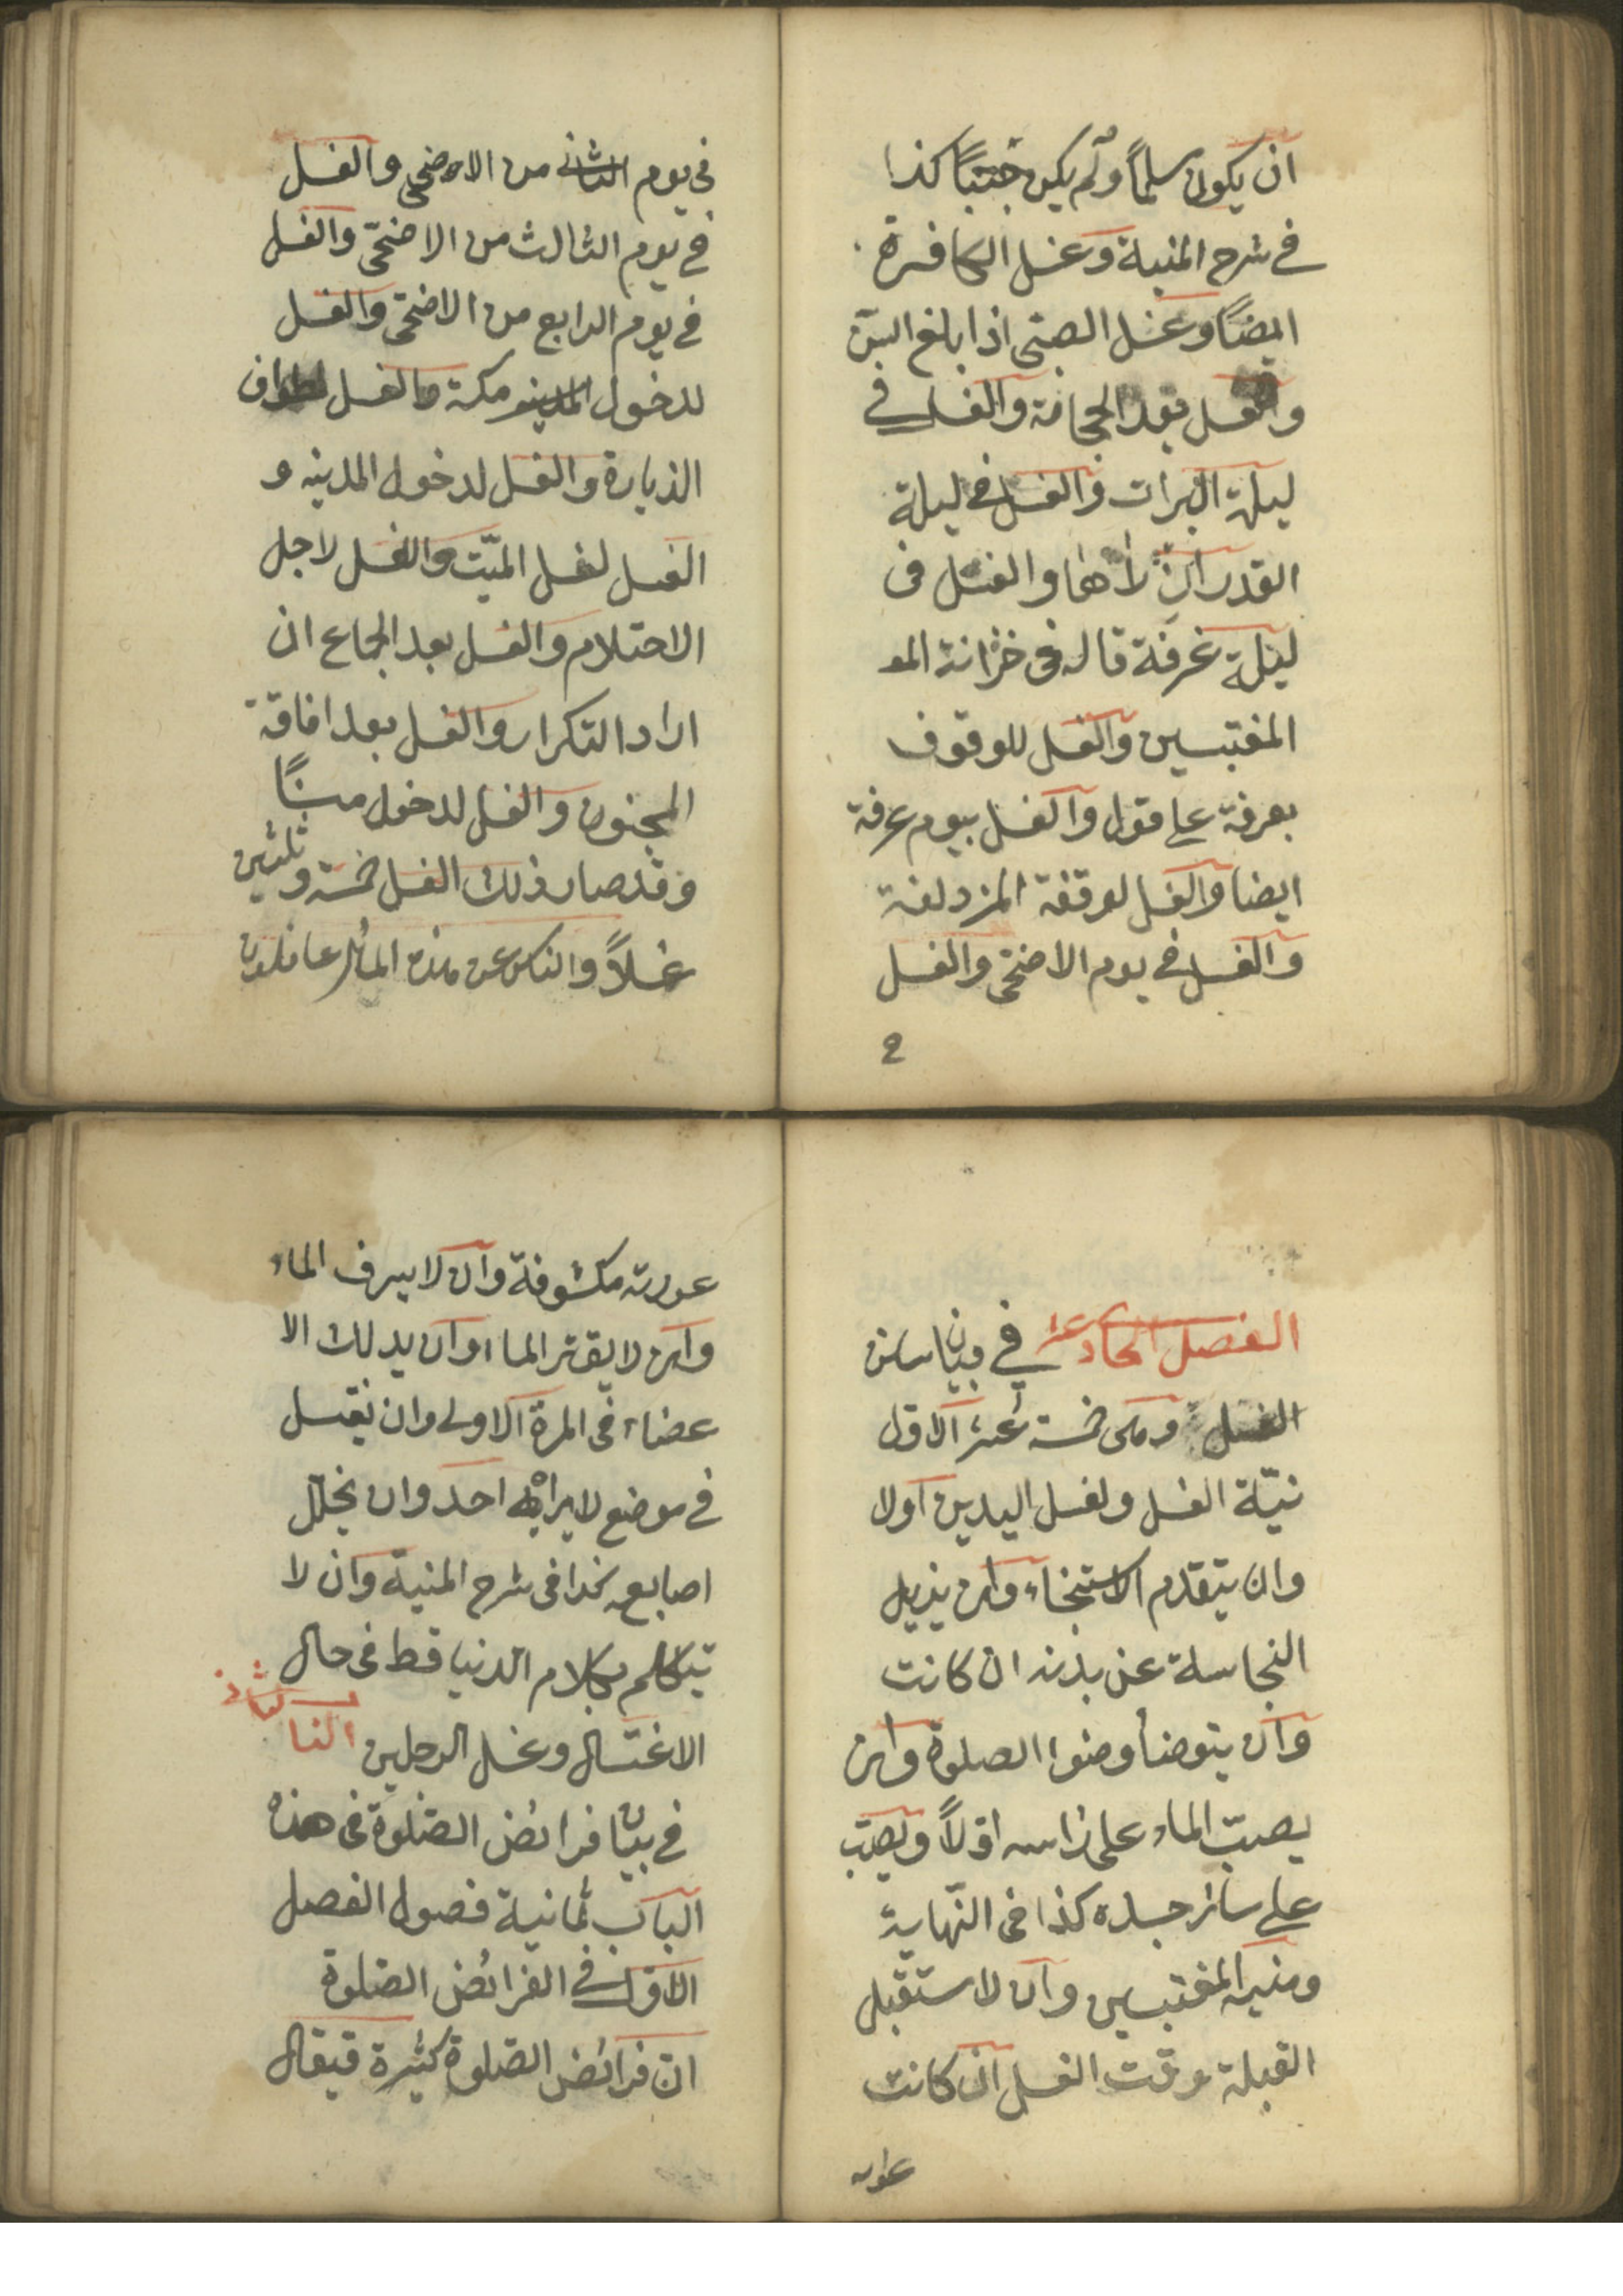 ان يكون سلماً ولم يكن جنباً كذا
في شرح المنية وغسل الكافرة
ايضاً وغسل الصبى اذا بلغ السن
والغسل بعد الحجامة والغسل في
ليلة البرات والغسل في ليلة
القدر ان راها والغسل فى
ليلة عرفة قاله فى خزانة المو
المغتسين والغسل للوقوف
بعرفة على قول والغسل بيوم عرفة
ايضا والغسل لوقفة المزدلفة
والغسل في يوم الاضحى والغسل
في يوم الثانى من الاضحى والغسل
في يوم الثالث من الاضحى والغسل
في يوم الرابع من الاضحى والغسل
لدخول مكة والغسل لطواف
الزيارة والغسل لدخول المدينه و
الغسل لغسل الميّت والغسل لاجل
الاحتلام والغسل بعد الجماع ان
اراد التكرار والغسل بعد افاقة
المجنون والغسل لدخول منًا
وقد صار ذلك الغسل خمسة و ثلثين
غسلاً والناس عن هذه المسائل غافلون
الفصل الحادى عشر في بيان سنن
الغسل وهى خمسة عشر الاول
نيّة الغسل وغسل اليدين اولا
وان يتقدم الاستنجاء وان يزيل
النجاسة عن بدنه ان كانت
وان يتوضأ وضوا الصلوة وان
يصبّ الماء على راسه اولاً ويصبّ
على سائر جسده كذا فى النّهاية
ومنية المغتسين وان لا ستقبل
القبلة وقت الغسل ان كانت
عورته
عورته مكشوفة وان لا يسرف الماء
وان لا يقتر الماء وان يدلك الا
عضاء فى المرة الاولى وان يغتسل
في موضع لا يراه احد وان يخلّل
اصابعه كذا فى شرح المنية وان لا
يتكلم بكلام الدنيا قط فى حال
الاغتسال وغسل الرجلين البا لثالث
في بيان فرائض الصّلوة فى هذه
الباب ثمانية فصول الفصل
الاوّل في الفرائض الصّلوة
انّ فرائض الصّلوة كثيرة فيقال